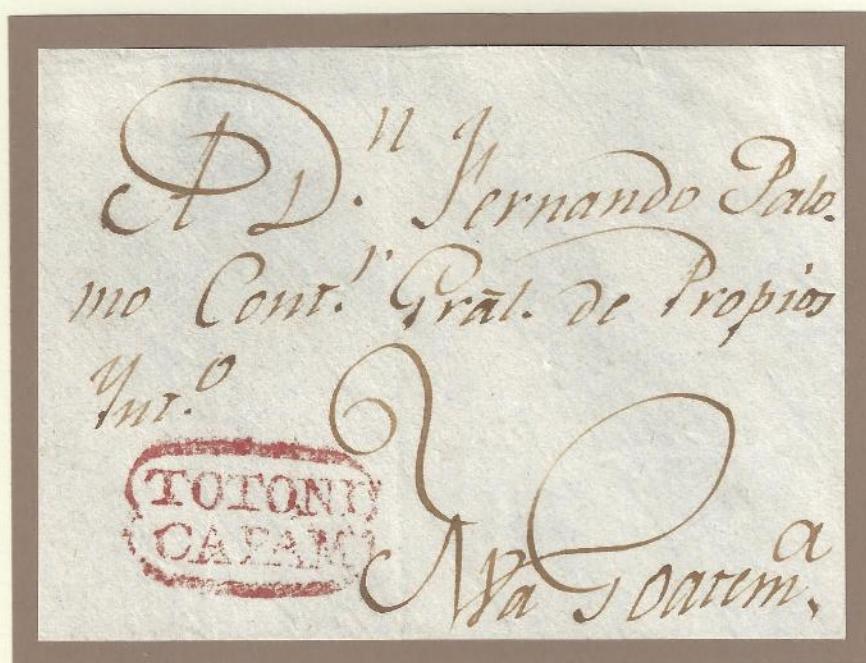 A D.n Fernando Palo-
mo Cont.r Grãl. de Propios
Ynt.o
TOTONI
CAPAM
Nva Goatem.a